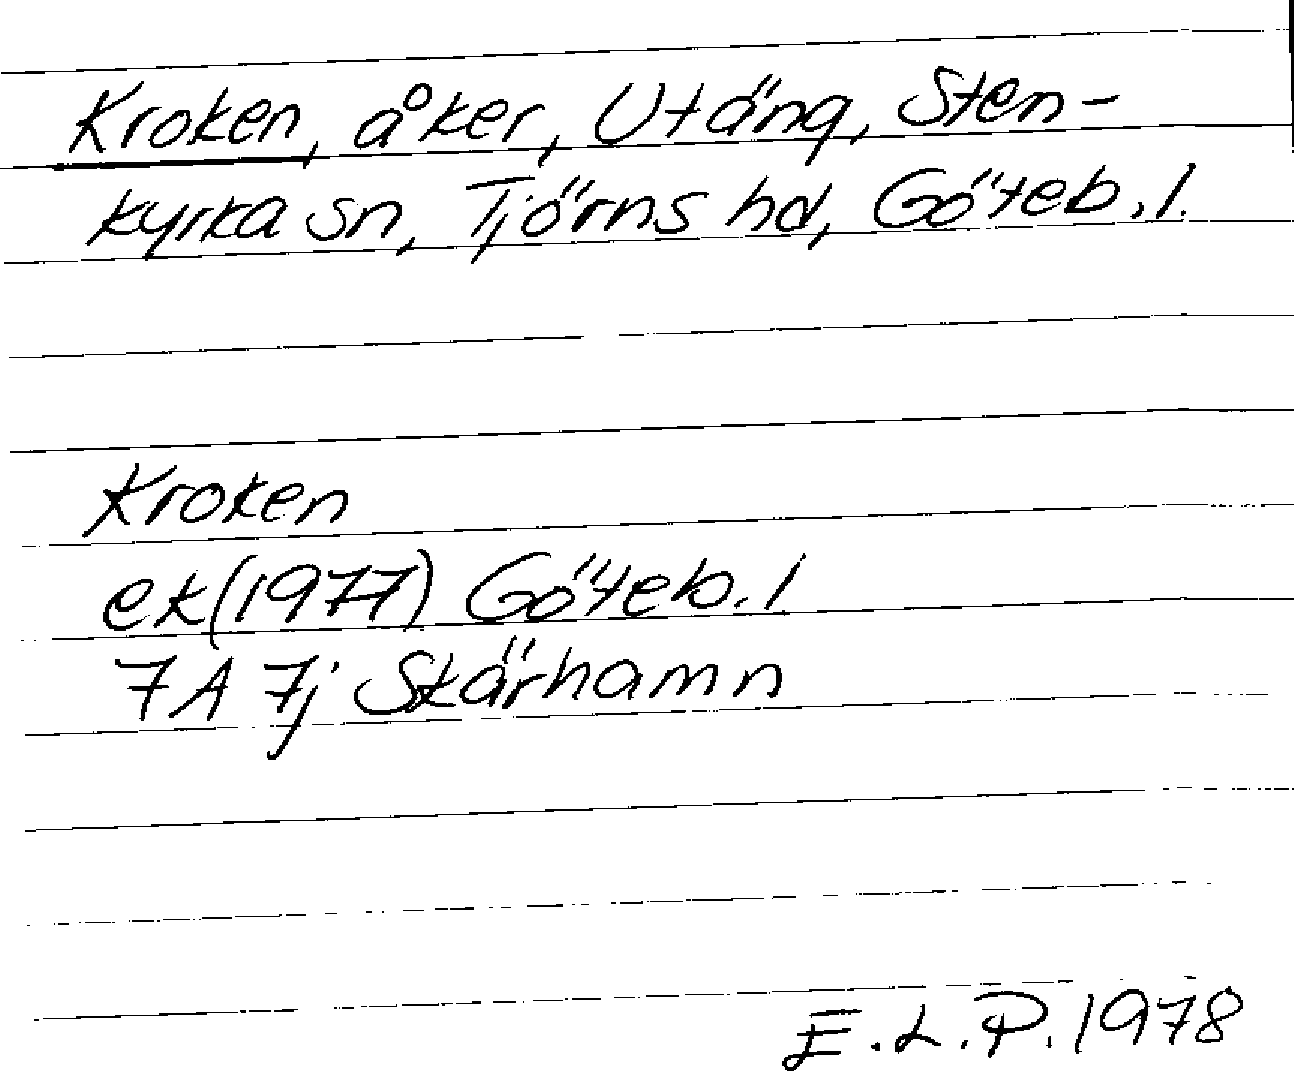 Kroken, åker, Utäng, Sten-
kyrka sn, Tjörns hd, Göteb. l.
Kroken
ek (1977) Göteb. l
7A 7j Skärhamn
E.L.P. 1978